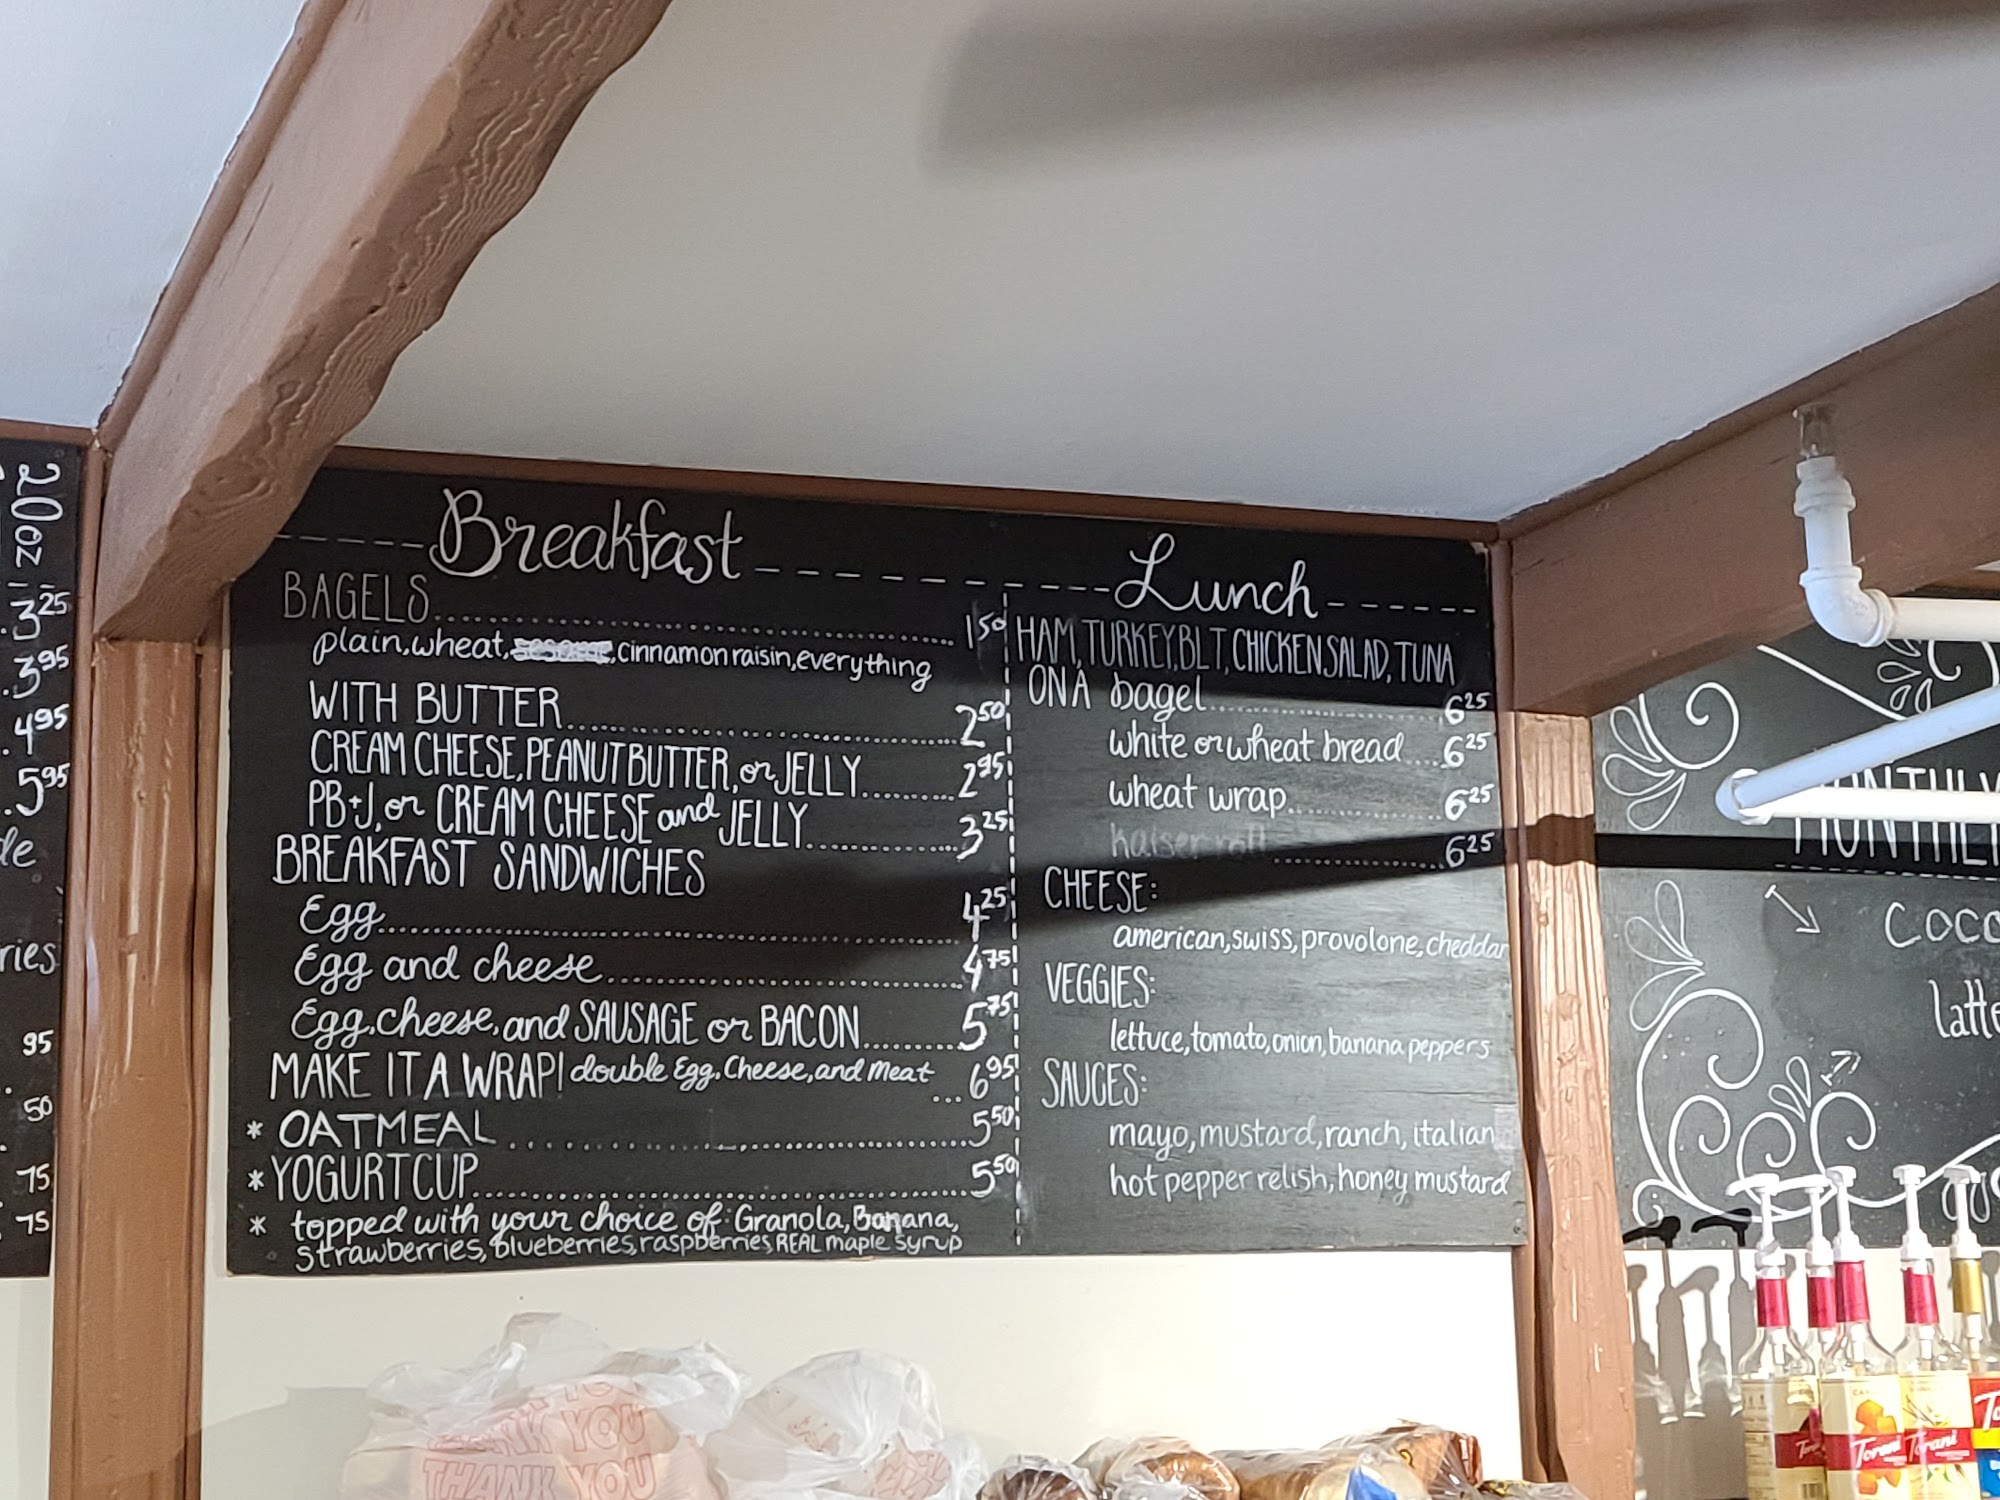 20oz
.3.25
.3.95
.4.95
.5.95
de
ries
95
50
75
75
Breakfast
BAGELS 1.50
plain, wheat, cinnamon raisin, everything
WITH BUTTER 2.50
CREAM CHEESE, PEANUT BUTTER, or JELLY 2.95
PB+J, or CREAM CHEESE and JELLY 3.25
BREAKFAST SANDWICHES
Egg 4.25
Egg and cheese 4.75
Egg, cheese, and SAUSAGE or BACON 5.75
MAKE IT A WRAP! double Egg, Cheese, and Meat ...6.95
* OATMEAL 5.50
* YOGURT CUP 5.50
* topped with your choice of: Granola, Banana,
strawberries, blueberries, raspberries, REAL maple syrup
Lunch
HAM, TURKEY, BLT, CHICKEN SALAD, TUNA
ON A bagel 6.25
white or wheat bread 6.25
wheat wrap 6.25
kaiser roll 6.25
CHEESE:
american, swiss, provolone, cheddar
VEGGIES:
lettuce, tomato, onion, banana peppers
SAUCES:
mayo, mustard, ranch, italian
hot pepper relish, honey mustard
MONTHLY
COCO
latte
THANK YOU
THANK YOU
Torani
Torani